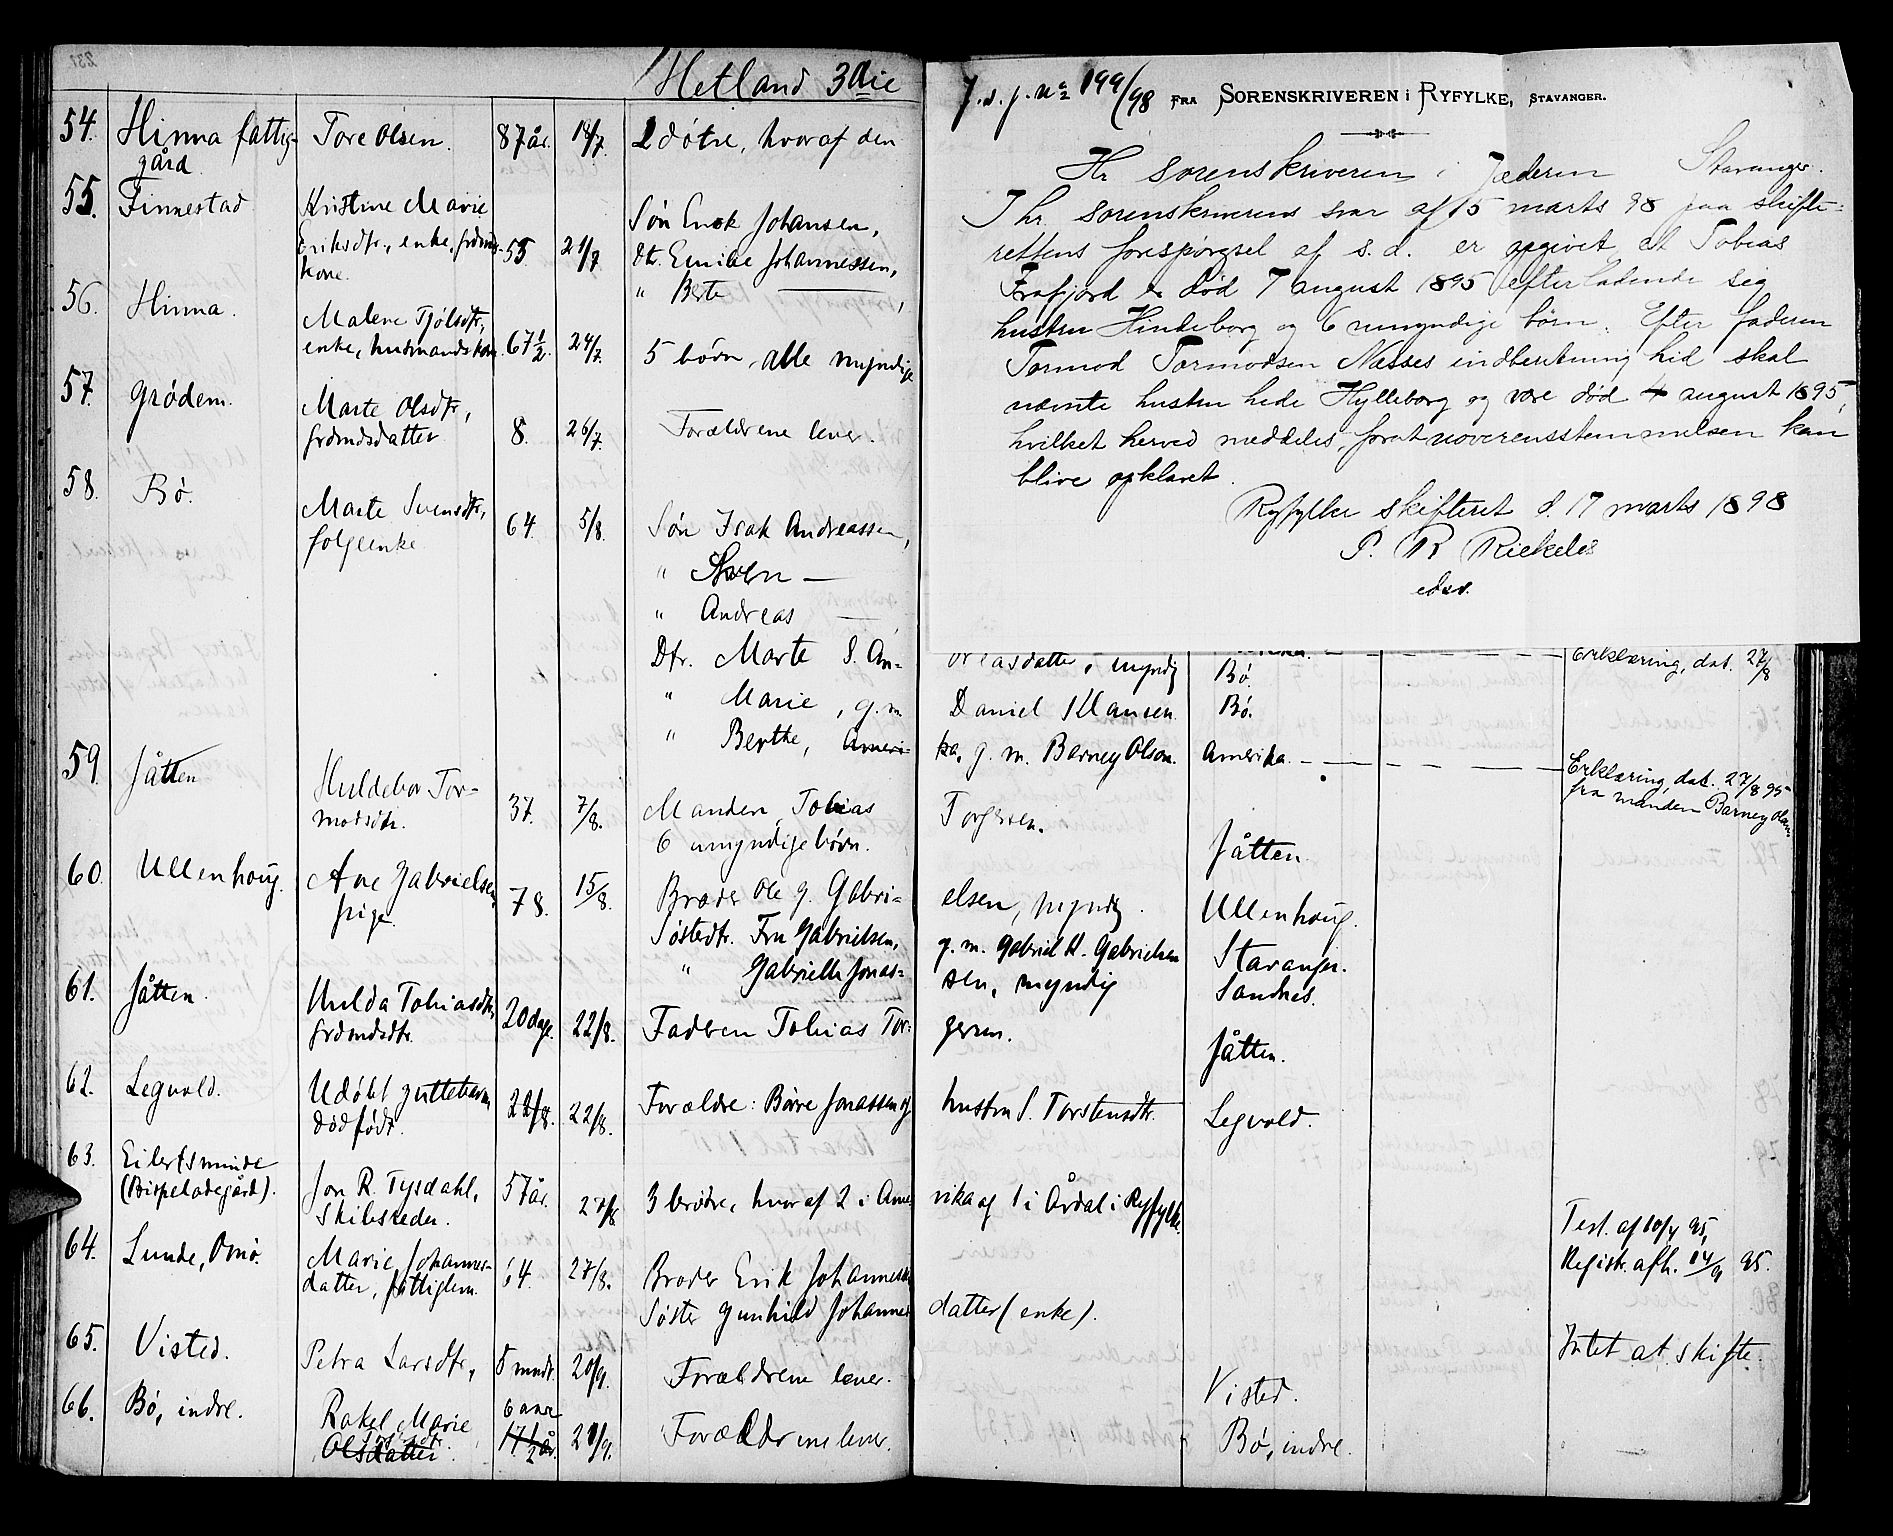 Hetland 3die
54. Hinna fattig- Tore Olsen. 87 år. 18/7 2 døtre, hvoraf den
gård
55. Finnestad Kristine Marie Søn Enok Johansen,
Eriksdtr., enke, grdmds- 55 21/7 Dtr. Emilie Johannessen,
kone. " Berte —— ,
56. Hinna. Malene Tjølsdtr,
enke, husmandskone 67½ 24/7. 5 børn, alle myndige
57. Grødem. Marte Olsdtr,
grdmdsdatter 8. 26/7 Forældrene lever.
58. Bø. Marte Svensdtr, 64. 5/8. Søn Isak Andreassen,
folgeenke " Sven —
" Andreas —,
Dtr. Marte S. An- dreasdatter, myndig Bø. Erklæring, dat. 27/8
" Marie, g. m. Daniel Klausen. Bø.
" Berthe, Ameri- ka, g. m. Barney Olson. Amerika. — — — Erklæring, dat. 27/8 95
fra manden Barney Olson
59. Jåtten Huldebor Tor- 37. 7/8. Manden, Tobias Torgersen.
modsdtr. 6 umyndige børn. Jåtten.
60. Ullenhoug. Ane Gabrielsen, 78. 15/8. Broder Ole G. Gabri- elsen, myndig. Ullenhoug.
pige. Søstedtr. Fru Gabrielsen, g. m. Gabriel K. Gabrielsen Stavanger.
" Gabrielle Jonas- sen, myndig Sandnes.
61. Jåtten. Hulda Tobiasdtr, 20 dage. 22/8. Faderen Tobias Tor- gersen. Jåtten.
grdmdsdtr.
62. Legvold. Udøbt guttebarn 22/8. 22/8. Forældre: Børre Jonassen og hustru S. Torstensdtr. Legvold.
dødfødt.
63. Eilertsminde
(Bispeladegård). Jon R. Tysdahl, 57 år. 27/8 3 brødre, hvoraf 2 i Ame- rika og 1 i Årdal i Ryfylke. Test. af 10/4 95,
Skibsreder. Registr. afh. 14/9 95.
64. Lunde, Omø. Marie Johannes- 64. 27/8. Broder Erik Johannessen
datter, fattiglem. Søster Gunhild Johannes- datter (enke).
65. Visted. Petra Larsdtr, 5 mndr. 20/9. Forældrene lever. Visted. Intet at skifte.
66. Bø, indre. Rakel Marie 6 aar
Olsdatter 17½ år. 21/9. Forældrene lever. Bø, indre.
J. s. j. No 199/98 FRA SORENSKRIVEREN I RYFYLKE, STAVANGER.
Hr sorenskriveren i Jæderen Stavanger.
I hr. sorenskriverens svar af 15 marts 98 paa skifte-
rettens forespørgsel af s. d. er opgivet at Tobias
Frafjord er død 7 august 1895 efterladende sig
hustru Hindeborg og 6 umyndige børn. Efter faderen
Tormod Tormodsen Næsses indberetning hid skal
nævnte hustru hede Hylleborg og være død 4 august 1895,
hvilket herved meddeles, forat uoverensstemmelsen kan
blive opklaret.
Ryfylke skifteret d. 17 marts 1898
P. R. Riekeles
edsv.